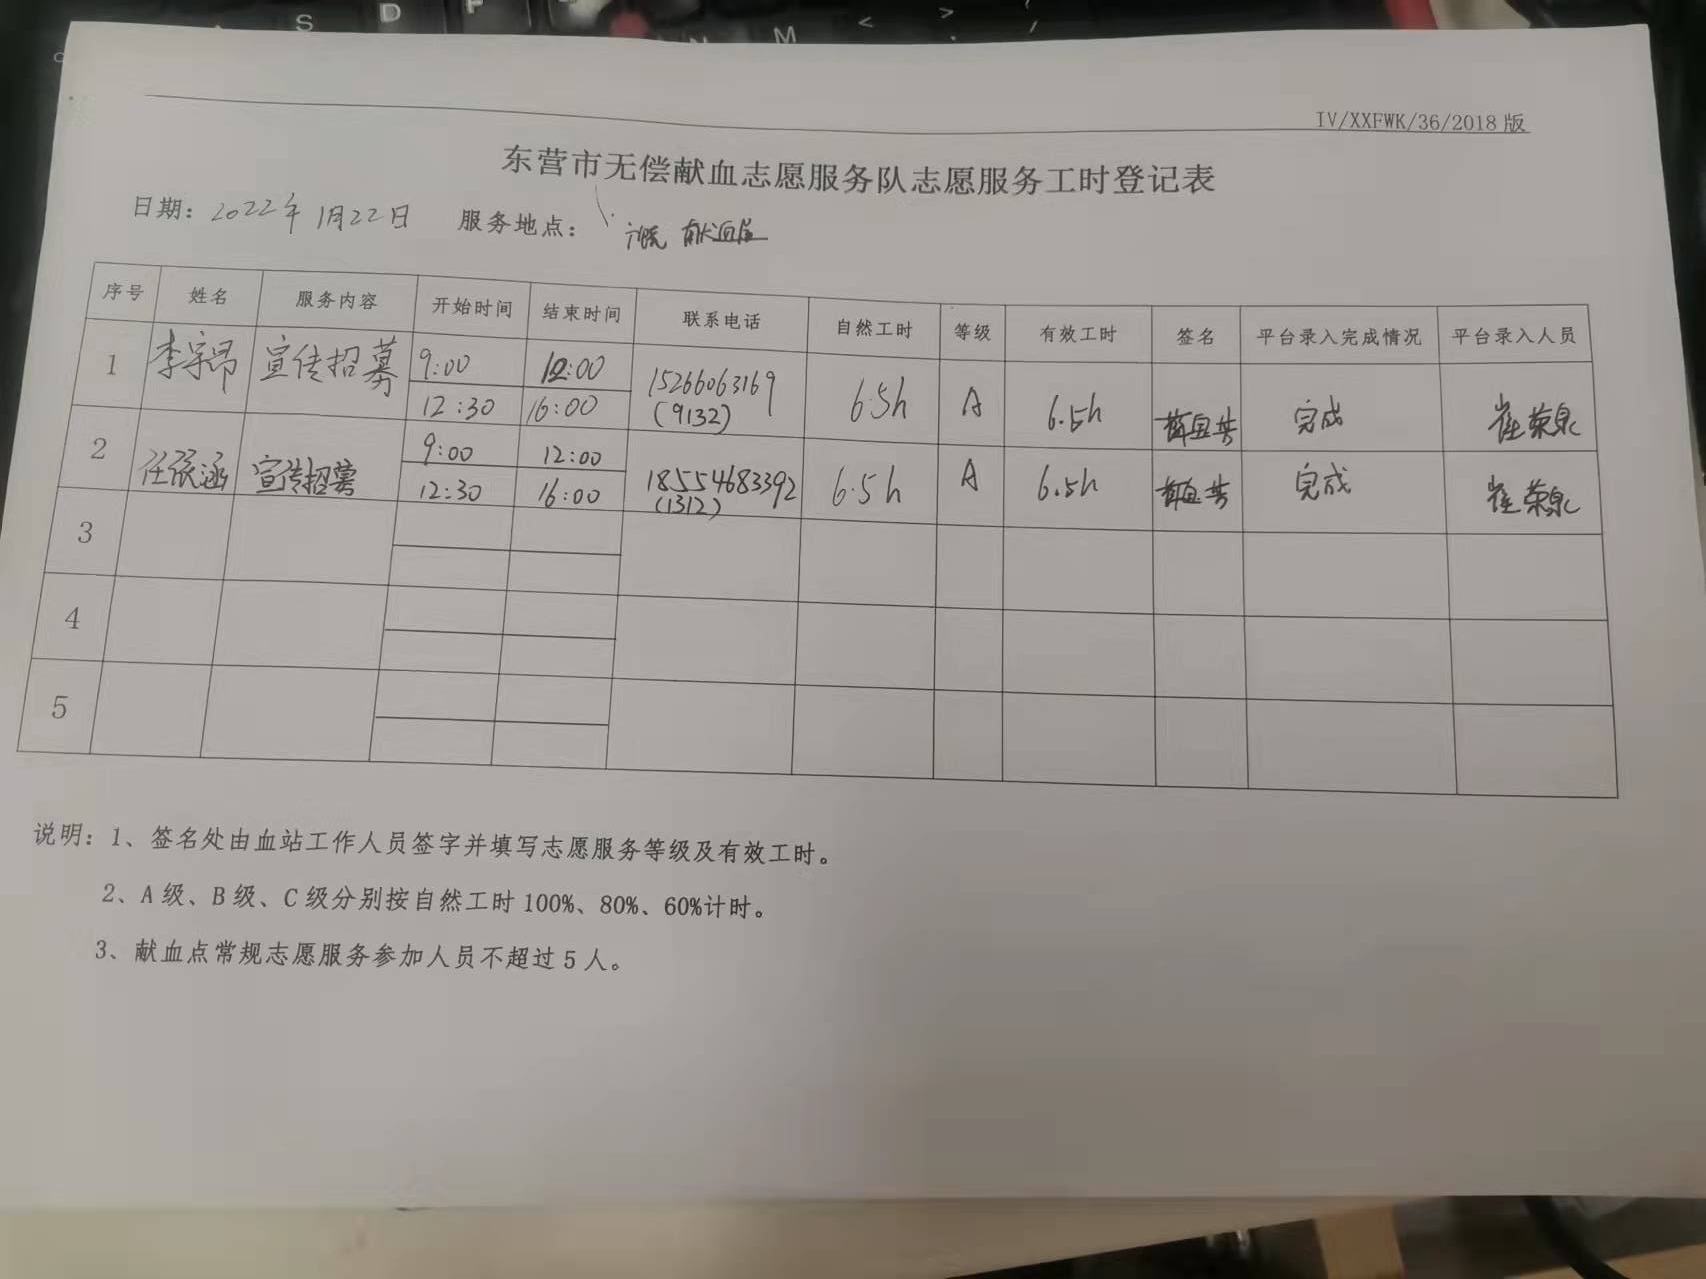 S D F
N M < >
IV/XXFWK/36/2018 版
东营市无偿献血志愿服务队志愿服务工时登记表
日期: 2022年 1月22日 服务地点: 献血屋
序号 姓名 服务内容 开始时间 结束时间 联系电话 自然工时 等级 有效工时 签名 平台录入完成情况 平台录入人员
1 李宇昂 宣传招募 9:00 12:00 15266063169 6.5h A 6.5h 完成 崔荣泉
12:30 16:00 (9132)
2 任张涵 宣传招募 9:00 12:00 18554683392 6.5h A 6.5h 完成 崔荣泉
12:30 16:00 (1312)
3
4
5
说明: 1、签名处由血站工作人员签字并填写志愿服务等级及有效工时。
2、A 级、B 级、C 级分别按自然工时 100%、80%、60%计时。
3、献血点常规志愿服务参加人员不超过 5 人。